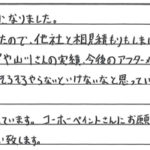 になりました。
たので、他社と相見積もりもしまし
や山川さんの実績、今後のアフターメ
そろそろやらないといけないなと思ってい
ています。コーホーペイントさんにお願
い致します。